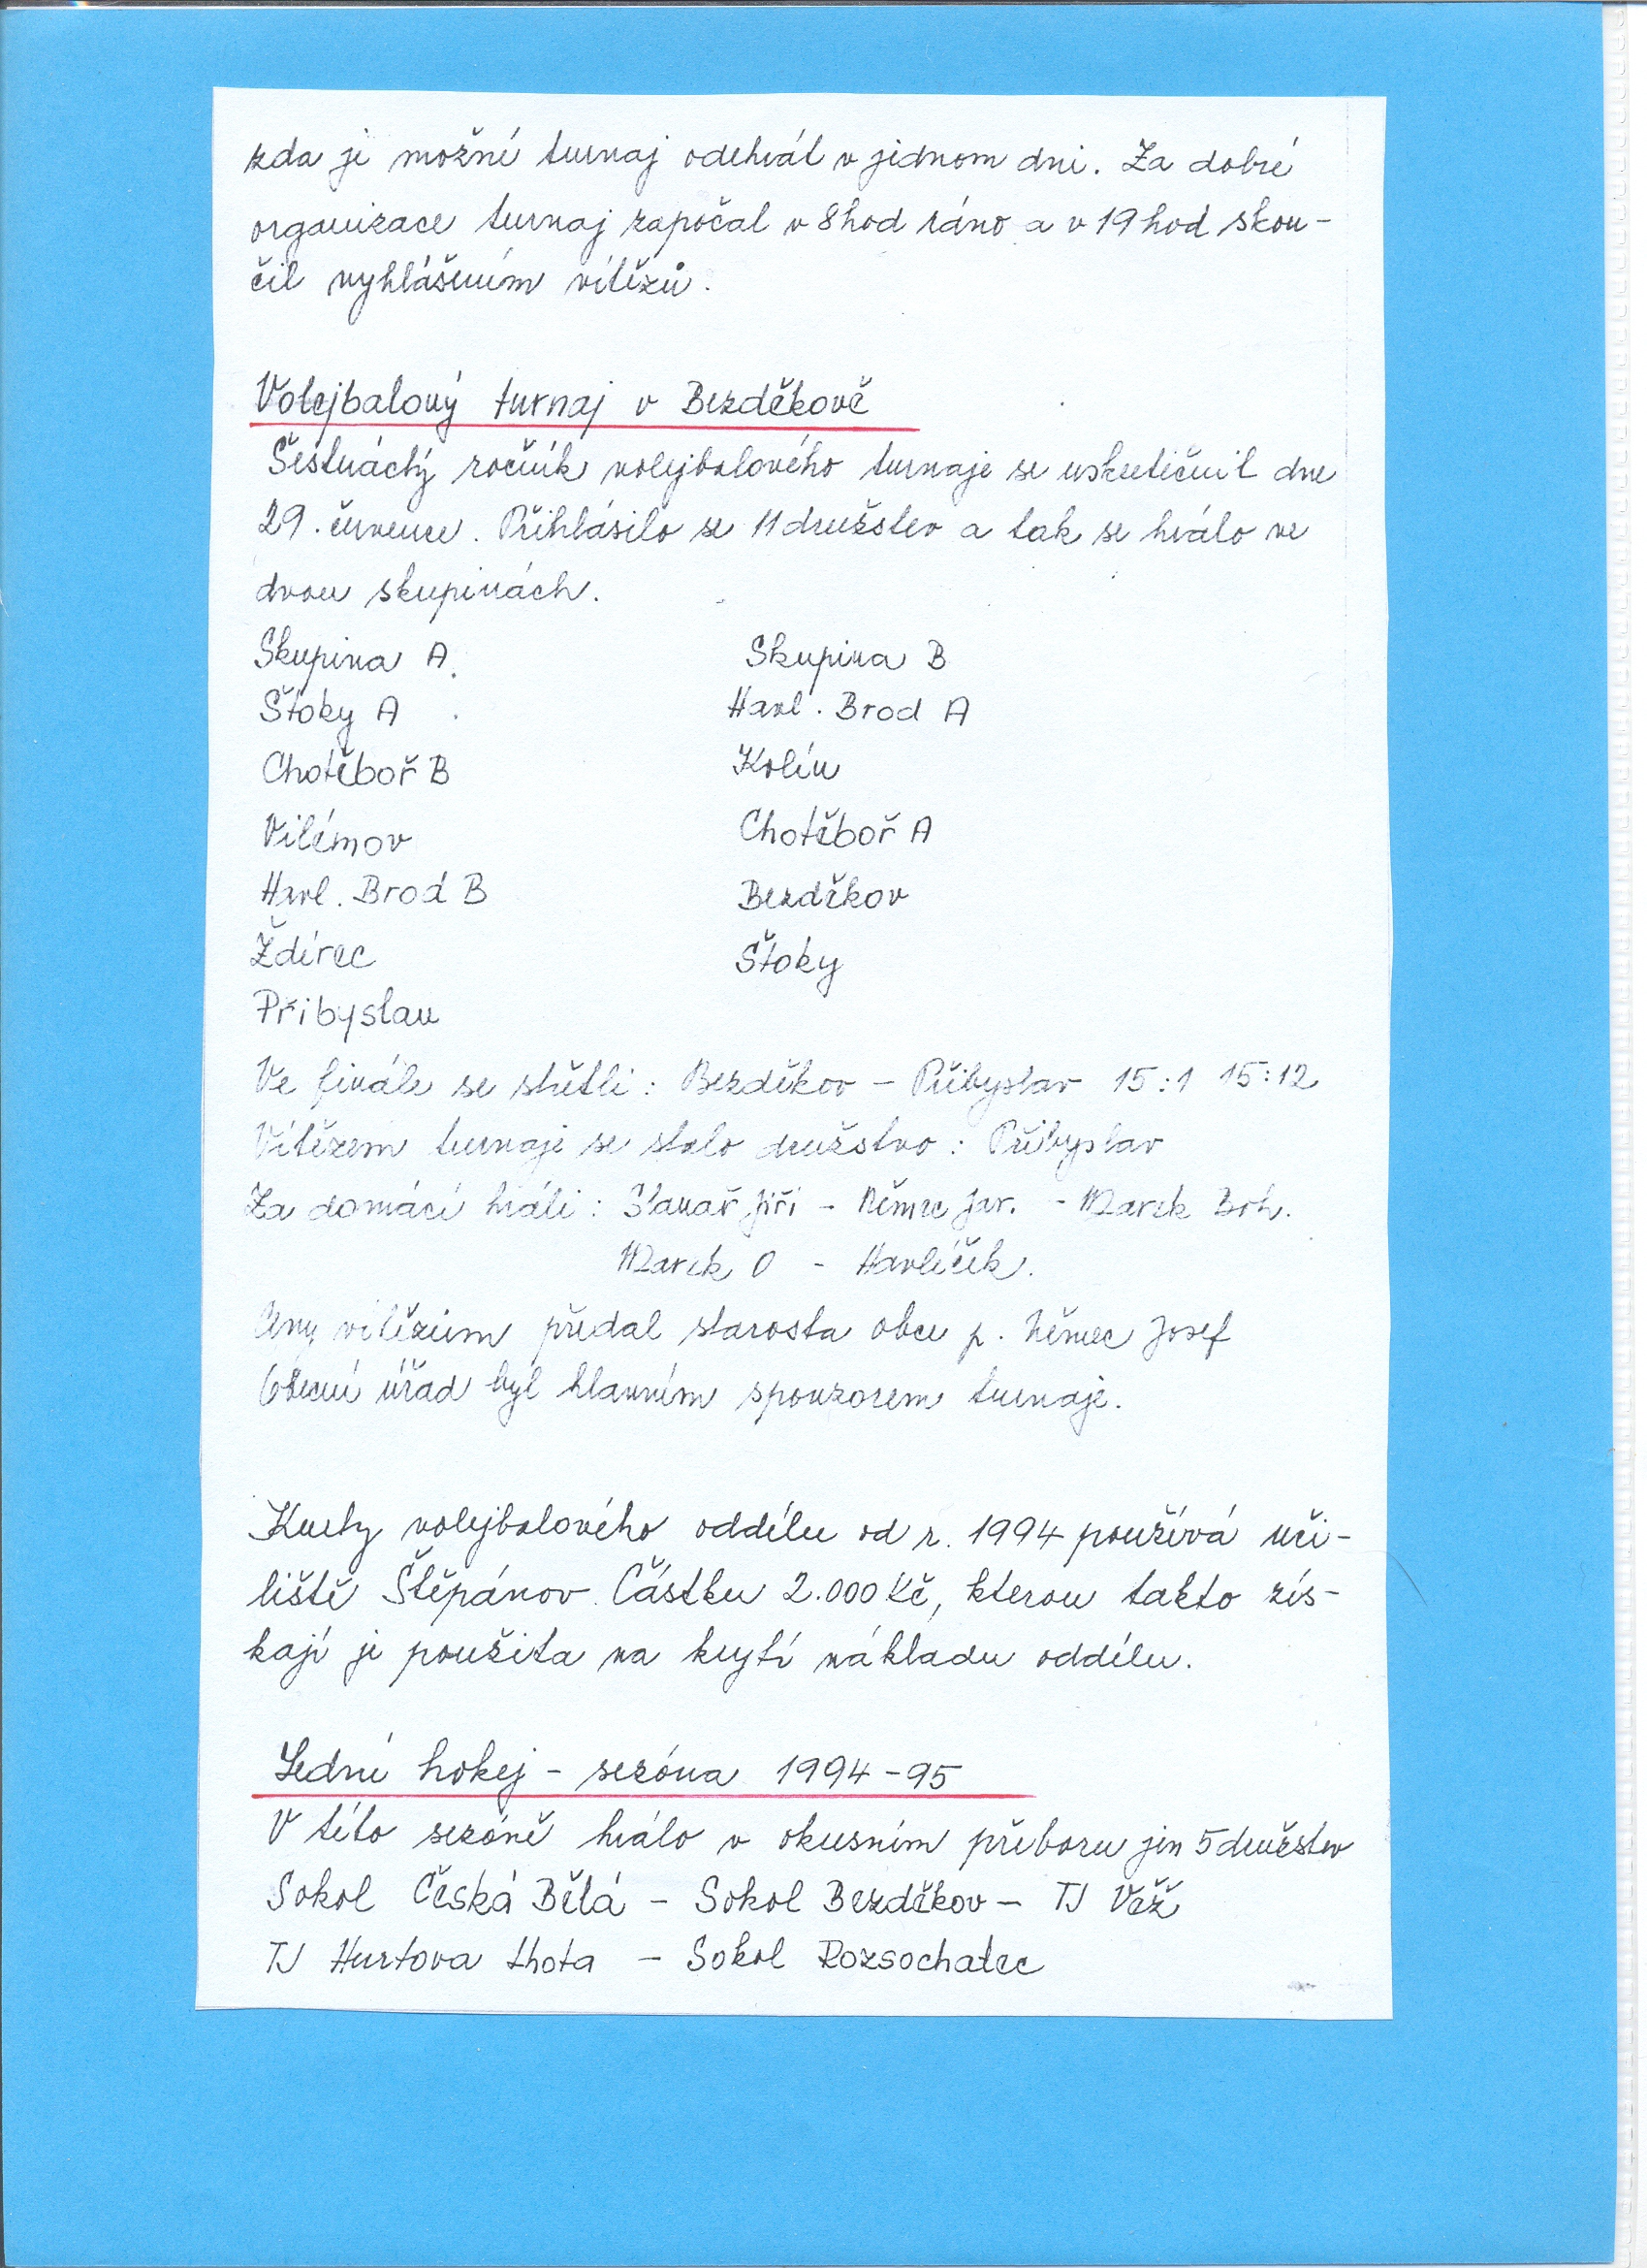 zda je možné turnaj odehrát v jednom dni. Za dobré
organizace turnaj započal v 8hod ráno a v 19 hod skon-
čil vyhlášením vítězů.
Volejbalový turnaj v Bezděkově
Šestnáctý ročník volejbalového turnaje se uskutečnil dne
29. července. Přihlásilo se 11 družstev a tak se hrálo ve
dvou skupinách.
Skupina A. Skupina B
Štoky A Havl. Brod A
Chotěboř B Kolín
Vilémov Chotěboř A
Havl. Brod B Bezděkov
Ždírec Štoky
Přibyslav
Ve finále se střetli: Bezděkov - Přibyslav 15:1 15:12
Vítězem turnaje se stalo družstvo: Přibyslav
Za domácí hráli: Stanař Jiří - Němec Jar. - Marek Boh.
Marek O - Havlíček.
Ceny vítězům předal starosta obce p. Němec Josef
Obecní úřad byl hlavním sponzorem turnaje.
Kurty volejbalového oddílu od r. 1994 používá uči-
liště Štěpánov. Částku 2.000 Kč, kterou takto zís-
kají je použita na krytí nákladu oddílu.
Lední hokej - sezóna 1994-95
V této sezóně hrálo v okresním přeboru jen 5 družstev
Sokol Česká Bělá - Sokol Bezděkov - TJ Věž
TJ Hurtova Lhota - Sokol Rozsochatec